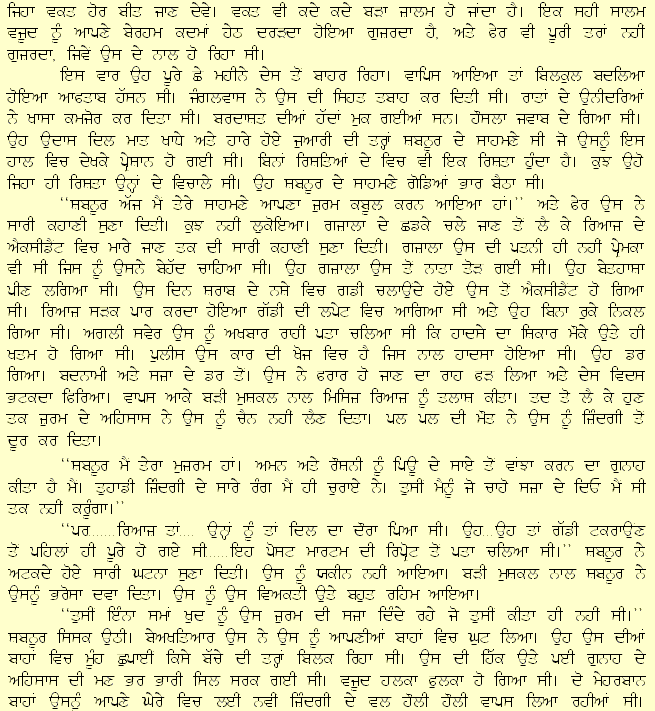 ਜਿਹਾ ਵਕਤ ਹੋਰ ਬੀਤ ਜਾਣ ਦੇਵੇ। ਵਕਤ ਵੀ ਕਦੇ ਕਦੇ ਬੜਾ ਜ਼ਾਲਮ ਹੋ ਜਾਂਦਾ ਹੈ। ਇਕ ਸਹੀ ਸਾਲਮ
ਵਜੂਦ ਨੂੰ ਆਪਣੇ ਬੇਰਹਮ ਕਦਮਾਂ ਹੇਠ ਦਰੜਦਾ ਹੋਇਆ ਗੁਜਰਦਾ ਹੈ, ਅਤੇ ਫੇਰ ਵੀ ਪੂਰੀ ਤਰਾਂ ਨਹੀ
ਗੁਜਰਦਾ, ਜਿਵੇਂ ਉਸ ਦੇ ਨਾਲ ਹੋ ਰਿਹਾ ਸੀ।
ਇਸ ਵਾਰ ਉਹ ਪੂਰੇ ਛੇ ਮਹੀਨੇ ਦੇਸ ਤੋਂ ਬਾਹਰ ਰਿਹਾ। ਵਾਪਿਸ ਆਇਆ ਤਾਂ ਬਿਲਕੁਲ ਬਦਲਿਆ
ਹੋਇਆ ਆਫਤਾਬ ਹੱਸਨ ਸੀ। ਜੰਗਲਵਾਸ ਨੇ ਉਸ ਦੀ ਸਿਹਤ ਤਬਾਹ ਕਰ ਦਿਤੀ ਸੀ। ਰਾਤਾਂ ਦੇ ਉਨੀਦਰਿਆਂ
ਨੇ ਖਾਸਾ ਕਮਜੋਰ ਕਰ ਦਿਤਾ ਸੀ। ਬਰਦਾਸਤ ਦੀਆਂ ਹੱਦਾਂ ਮੁਕ ਗਈਆਂ ਸਨ। ਹੌਸਲਾ ਜਵਾਬ ਦੇ ਗਿਆ ਸੀ।
ਉਹ ਉਦਾਸ ਦਿਲ ਮਾਤ ਖਾਧੇ ਅਤੇ ਹਾਰੇ ਹੋਏ ਜੁਆਰੀ ਦੀ ਤਰ੍ਹਾਂ ਸਬਨੂਰ ਦੇ ਸਾਹਮਣੇ ਸੀ ਜੋ ਉਸਨੂੰ ਇਸ
ਹਾਲ ਵਿਚ ਦੇਖਕੇ ਪ੍ਰੇਸਾਨ ਹੋ ਗਈ ਸੀ। ਬਿਨਾਂ ਰਿਸਤਿਆਂ ਦੇ ਵਿਚ ਵੀ ਇਕ ਰਿਸਤਾ ਹੁੰਦਾ ਹੈ। ਕੁਝ ਉਹੋ
ਜਿਹਾ ਹੀ ਰਿਸਤਾ ਉਨ੍ਹਾਂ ਦੇ ਵਿਚਾਲੇ ਸੀ। ਉਹ ਸਬਨੂਰ ਦੇ ਸਾਹਮਣੇ ਗੋਡਿਆਂ ਭਾਰ ਬੈਠਾ ਸੀ।
‘‘ਸ਼ਬਨੂਰ ਅੱਜ ਮੈ ਤੇਰੇ ਸਾਹਮਣੇ ਆਪਣਾ ਜੁਰਮ ਕਬੂਲ ਕਰਨ ਆਇਆ ਹਾਂ।’’ ਅਤੇ ਫੇਰ ਉਸ ਨੇ
ਸਾਰੀ ਕਹਾਣੀ ਸੁਣਾ ਦਿਤੀ। ਕੁਝ ਨਹੀ ਲੁਕੋਇਆ। ਗਜਾਲਾ ਦੇ ਛਡਕੇ ਚਲੇ ਜਾਣ ਤੋਂ ਲੈ ਕੇ ਰਿਆਜ ਦੇ
ਐਕਸੀਡੈਂਟ ਵਿਚ ਮਾਰੇ ਜਾਣ ਤਕ ਦੀ ਸਾਰੀ ਕਹਾਣੀ ਸੁਣਾ ਦਿਤੀ। ਗਜਾਲਾ ਉਸ ਦੀ ਪਤਨੀ ਹੀ ਨਹੀ ਪ੍ਰੇਮਕਾ
ਵੀ ਸੀ ਜਿਸ ਨੂੰ ਉਸਨੇ ਬੇਹੱਦ ਚਾਹਿਆ ਸੀ। ਉਹ ਗਜਾਲਾ ਉਸ ਤੋਂ ਨਾਤਾ ਤੋੜ ਗਈ ਸੀ। ਉਹ ਬੇਤਹਾਸਾ
ਪੀਣ ਲਗਿਆ ਸੀ। ਉਸ ਦਿਨ ਸਰਾਬ ਦੇ ਨਸੇ ਵਿਚ ਗਡੀ ਚਲਾਉਦੇ ਹੋਏ ਉਸ ਤੋਂ ਐਕਸੀਡੈਂਟ ਹੋ ਗਿਆ
ਸੀ। ਰਿਆਜ ਸੜਕ ਪਾਰ ਕਰਦਾ ਹੋਇਆ ਗੱਡੀ ਦੀ ਲਪੇਟ ਵਿਚ ਆਗਿਆ ਸੀ ਅਤੇ ਉਹ ਬਿਨਾ ਰੁਕੇ ਨਿਕਲ
ਗਿਆ ਸੀ। ਅਗਲੀ ਸਵੇਰ ਉਸ ਨੂੰ ਅਖਬਾਰ ਰਾਹੀ ਪਤਾ ਚਲਿਆ ਸੀ ਕਿ ਹਾਦਸੇ ਦਾ ਸ਼ਿਕਾਰ ਮੌਕੇ ਉਤੇ ਹੀ
ਖਤਮ ਹੋ ਗਿਆ ਸੀ। ਪੁਲੀਸ ਉਸ ਕਾਰ ਦੀ ਖੋਜ ਵਿਚ ਹੈ ਜਿਸ ਨਾਲ ਹਾਦਸਾ ਹੋਇਆ ਸੀ। ਉਹ ਡਰ
ਗਿਆ। ਬਦਨਾਮੀ ਅਤੇ ਸਜ਼ਾ ਦੇ ਡਰ ਤੋਂ। ਉਸ ਨੇ ਫਰਾਰ ਹੋ ਜਾਣ ਦਾ ਰਾਹ ਫੜ ਲਿਆ ਅਤੇ ਦੇਸ ਵਿਦਸ
ਭਟਕਦਾ ਫਿਰਿਆ। ਵਾਪਸ ਆਕੇ ਬੜੀ ਮੁਸਕਲ ਨਾਲ ਮਿਸਿਜ ਰਿਆਜ ਨੂੰ ਤਲਾਸ ਕੀਤਾ। ਤਦ ਤੋ ਲੈ ਕੇ ਹੁਣ
ਤਕ ਜੁਰਮ ਦੇ ਅਹਿਸਾਸ ਨੇ ਉਸ ਨੂੰ ਚੈਨ ਨਹੀ ਲੈਣ ਦਿਤਾ। ਪਲ ਪਲ ਦੀ ਮੌਤ ਨੇ ਉਸ ਨੂੰ ਜ਼ਿੰਦਗੀ ਤੋਂ
ਦੂਰ ਕਰ ਦਿਤਾ।
‘‘ਸ਼ਬਨੂਰ ਮੈਂ ਤੇਰਾ ਮੁਜਰਮ ਹਾਂ। ਅਮਨ ਅਤੇ ਰੌਸਨੀ ਨੂੰ ਪਿਉ ਦੇ ਸਾਏ ਤੋਂ ਵਾਂਝਾ ਕਰਨ ਦਾ ਗੁਨਾਹ
ਕੀਤਾ ਹੈ ਮੈਂ। ਤੁਹਾਡੀ ਜ਼ਿੰਦਗੀ ਦੇ ਸਾਰੇ ਰੰਗ ਮੈਂ ਹੀ ਚੁਰਾਏ ਨੇ। ਤੁਸੀ ਮੈਨੂੰ ਜੋ ਚਾਹੋ ਸਜ਼ਾ ਦੇ ਦਿਓ ਮੈਂ ਸੀ
ਤਕ ਨਹੀ ਕਰੂੰਗਾ।’’
‘‘ਪਰ......ਰਿਆਜ ਤਾਂ.... ਉਨ੍ਹਾਂ ਨੂੰ ਤਾਂ ਦਿਲ ਦਾ ਦੌਰਾ ਪਿਆ ਸੀ। ਉਹ...ਉਹ ਤਾਂ ਗੱਡੀ ਟਕਰਾਉਣ
ਤੋਂ ਪਹਿਲਾਂ ਹੀ ਪੂਰੇ ਹੋ ਗਏ ਸੀ.....ਇਹ ਪੋਸਟ ਮਾਰਟਮ ਦੀ ਰਿਪ੍ਰੋਟ ਤੋ ਪਤਾ ਚਲਿਆ ਸੀ।’’ ਸਬਨੂਰ ਨੇ
ਅਟਕਦੇ ਹੋਏ ਸਾਰੀ ਘਟਨਾ ਸੁਣਾ ਦਿਤੀ। ਉਸ ਨੂੰ ਯਕੀਨ ਨਹੀ ਆਇਆ। ਬੜੀ ਮੁਸਕਲ ਨਾਲ ਸਬਨੂਰ ਨੇ
ਉਸਨੂੰ ਭਰੋਸਾ ਦਵਾ ਦਿਤਾ। ਉਸ ਨੂੰ ਉਸ ਵਿਅਕਤੀ ਉਤੇ ਬਹੁਤ ਰਹਿਮ ਆਇਆ।
‘‘ਤੁਸੀ ਇੰਨਾ ਸਮਾਂ ਖੁਦ ਨੂੰ ਉਸ ਜੁਰਮ ਦੀ ਸਜ਼ਾ ਦਿੰਦੇ ਰਹੇ ਜੋ ਤੁਸੀ ਕੀਤਾ ਹੀ ਨਹੀ ਸੀ।’’
ਸਬਨੂਰ ਸਿਸਕ ਉਠੀ। ਬੇਅਖਤਿਆਰ ਉਸ ਨੇ ਉਸ ਨੂੰ ਆਪਣੀਆਂ ਬਾਹਾਂ ਵਿਚ ਘੁਟ ਲਿਆ। ਉਹ ਉਸ ਦੀਆਂ
ਬਾਹਾਂ ਵਿਚ ਮੂੰਹ ਛੁਪਾਈ ਕਿਸੇ ਬੱਚੇ ਦੀ ਤਰ੍ਹਾਂ ਬਿਲਕ ਰਿਹਾ ਸੀ। ਉਸ ਦੀ ਹਿੱਕ ਉਤੇ ਪਈ ਗੁਨਾਹ ਦੇ
ਅਹਿਸਾਸ ਦੀ ਮਣ ਭਰ ਭਾਰੀ ਸਿਲ ਸਰਕ ਗਈ ਸੀ। ਵਜੂਦ ਹਲਕਾ ਫੁਲਕਾ ਹੋ ਗਿਆ ਸੀ। ਦੋ ਮੇਹਰਬਾਨ
ਬਾਹਾਂ ਉਸਨੂੰ ਆਪਣੇ ਘੇਰੇ ਵਿਚ ਲਈ ਨਵੀ ਜ਼ਿੰਦਗੀ ਦੇ ਵਲ ਹੌਲੀ ਹੌਲੀ ਵਾਪਸ ਲਿਆ ਰਹੀਆਂ ਸੀ।